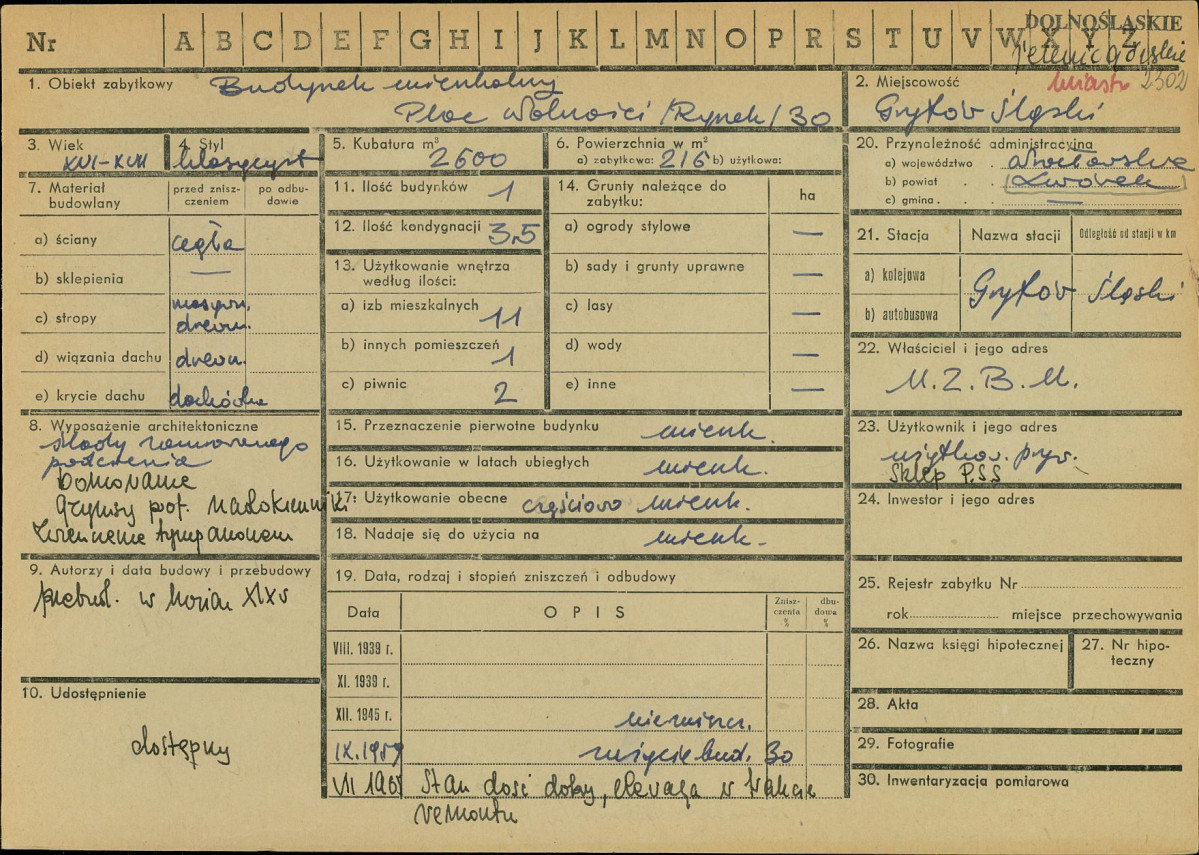 DOLNOŚLĄSKIE
Nr A B C D E F G H I J K L M N O P R S T U V W X Y Z
miasto 2302
1. Obiekt zabytkowy Budynek mieszkalny
Plac Wolności /Rynek/ 30
2. Miejscowość
Gryfów Śląski
3. Wiek
XVI-XVII
4. Styl
klasycyst.
5. Kubatura m³
2600
6. Powierzchnia w m²
a) zabytkowa: 216 b) użytkowa:
7. Materiał budowlany
przed zniszczeniem
po odbudowie
a) ściany cegła
b) sklepienia —
c) stropy masywn. drewn.
d) wiązania dachu drewn.
e) krycie dachu dachówka
8. Wyposażenie architektoniczne
ślady zamurowanego
podcienia
Boniowanie
Gzymsy prof. nadokienniki
Zwieńczenie tympanonem
9. Autorzy i data budowy i przebudowy
przebud. w końcu XIX w
10. Udostępnienie
dostępny
11. Ilość budynków 1
12. Ilość kondygnacji 3,5
13. Użytkowanie wnętrza
według ilości:
a) izb mieszkalnych 11
b) innych pomieszczeń 1
c) piwnic 2
14. Grunty należące do
zabytku:
ha
a) ogrody stylowe —
b) sady i grunty uprawne —
c) lasy —
d) wody —
e) inne —
15. Przeznaczenie pierwotne budynku mieszk.
16. Użytkowanie w latach ubiegłych mieszk.
17. Użytkowanie obecne częściowo mieszk.
18. Nadaje się do użycia na mieszk.
19. Data, rodzaj i stopień zniszczeń i odbudowy
Data OPIS Zniszczenia % dbudowa %
VIII. 1939 r.
XI. 1939 r.
XII. 1945 r. niezniszcz.
IX. 1959 zużycie bud. 30
VII 1965 Stan dość dobry, elewacja w trakcie
remontu
20. Przynależność administracyjna
a) województwo wrocławskie
b) powiat Lwówek
c) gmina —
21. Stacja Nazwa stacji Odległość od stacji w km
a) kolejowa
Gryfów Śląski
b) autobusowa
22. Właściciel i jego adres
M.Z.B.M.
23. Użytkownik i jego adres
użytkow. pryw.
Sklep PSS
24. Inwestor i jego adres
25. Rejestr zabytku Nr
rok miejsce przechowywania
26. Nazwa księgi hipotecznej
27. Nr hipoteczny
28. Akta
29. Fotografie
30. Inwentaryzacja pomiarowa